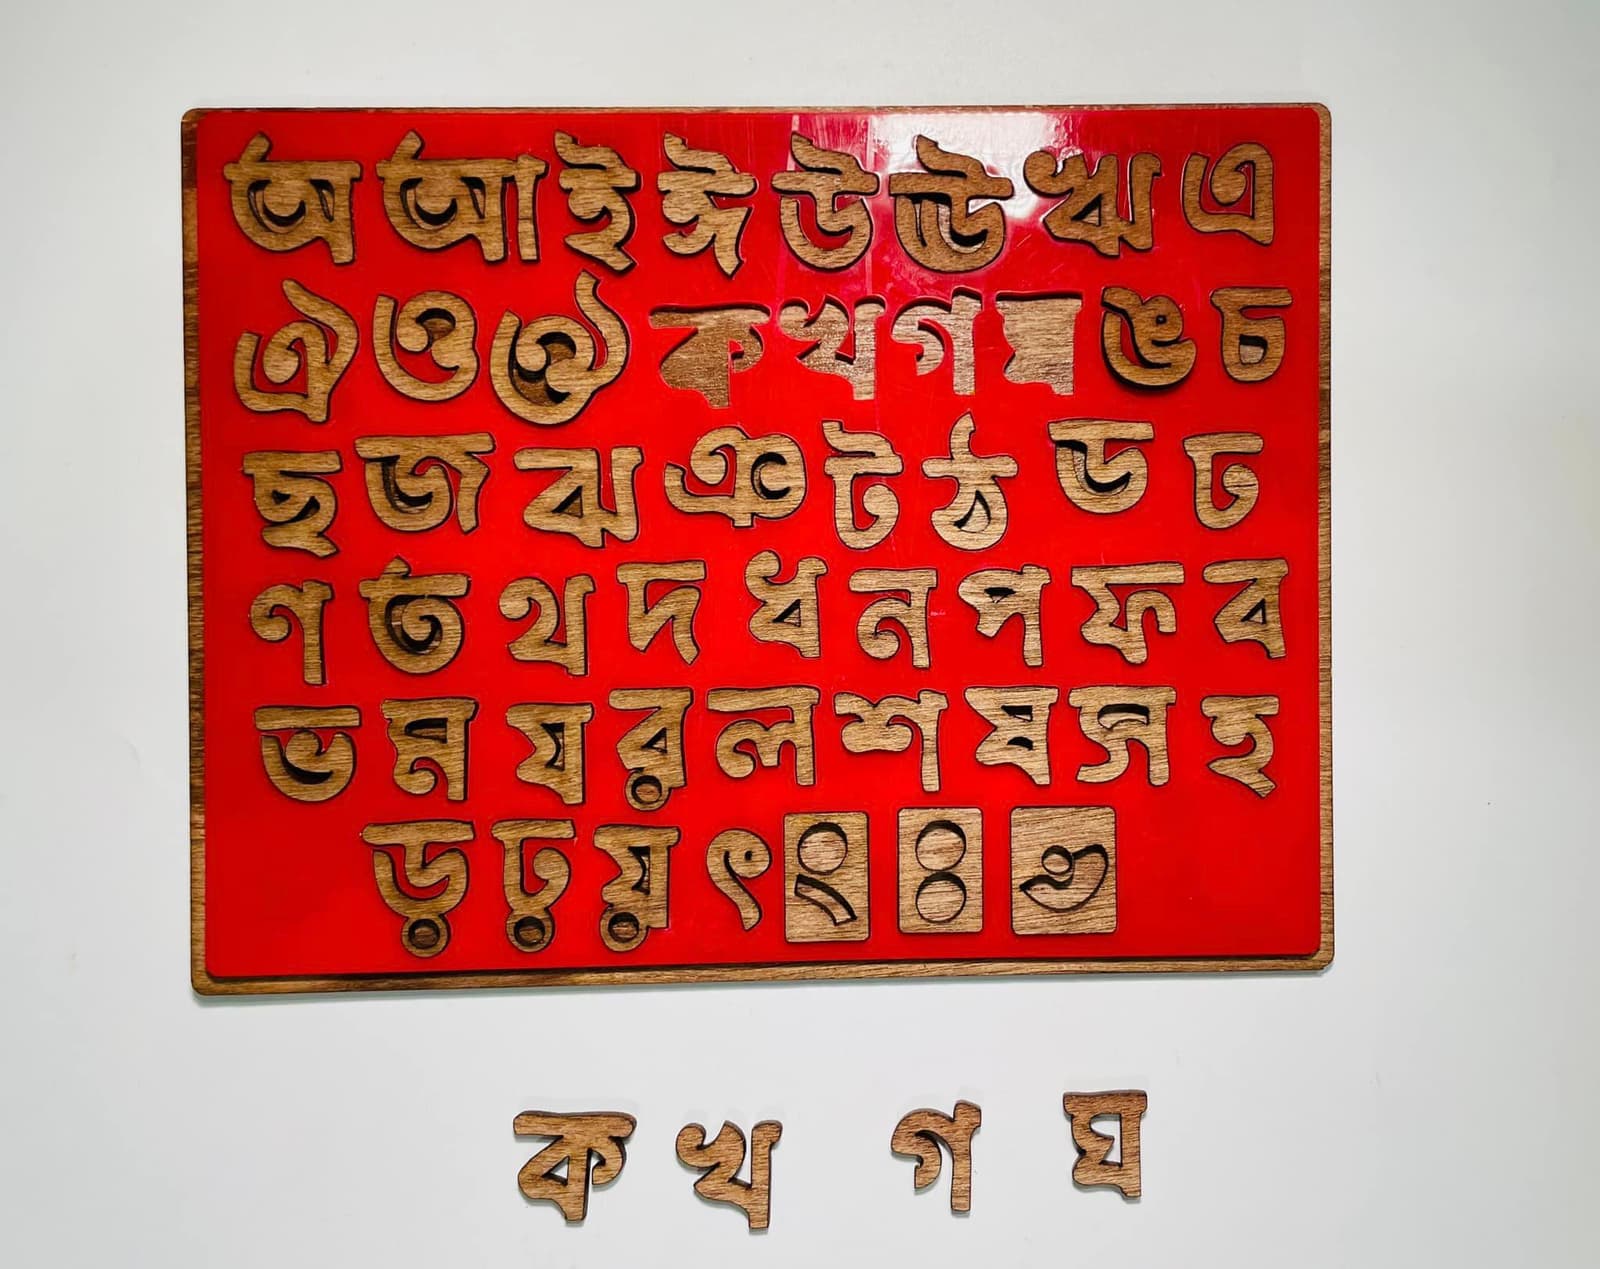 অ আ ই ঈ উ ঊ ঋ এ
ঐ ও ঔ ক খ গ ঘ ঙ চ
ছ জ ঝ ঞ ট ঠ ড ঢ
ণ ত থ দ ধ ন প ফ ব
ভ ম য র ল শ ষ স হ
ড় ঢ় য় ৎ ং ঃ ঁ
ক খ গ ঘ